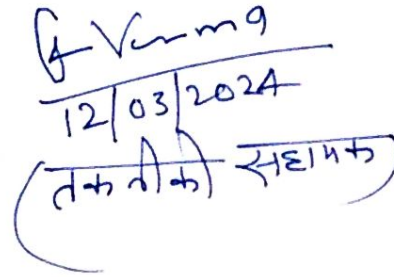 Verma
12/03/2024
(तकनीकी सहायक)